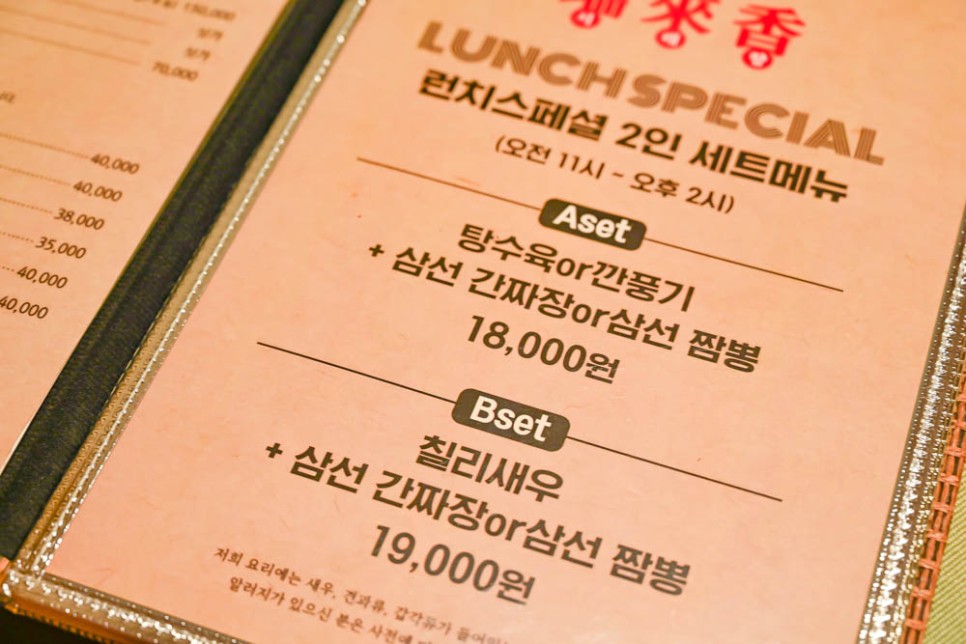 150,000
싯가
싯가
70,000
40,000
40,000
38,000
35,000
40,000
40,000
來香
LUNCH SPECIAL
런치스페셜 2인 세트메뉴
(오전 11시 ~ 오후 2시)
Aset
탕수육or깐풍기
+ 삼선 간짜장or삼선 짬뽕
18,000원
Bset
칠리새우
+ 삼선 간짜장or삼선 짬뽕
19,000원
저희 요리에는 새우, 견과류, 갑각류가 들어있
알러지가 있으신 분은 사전에